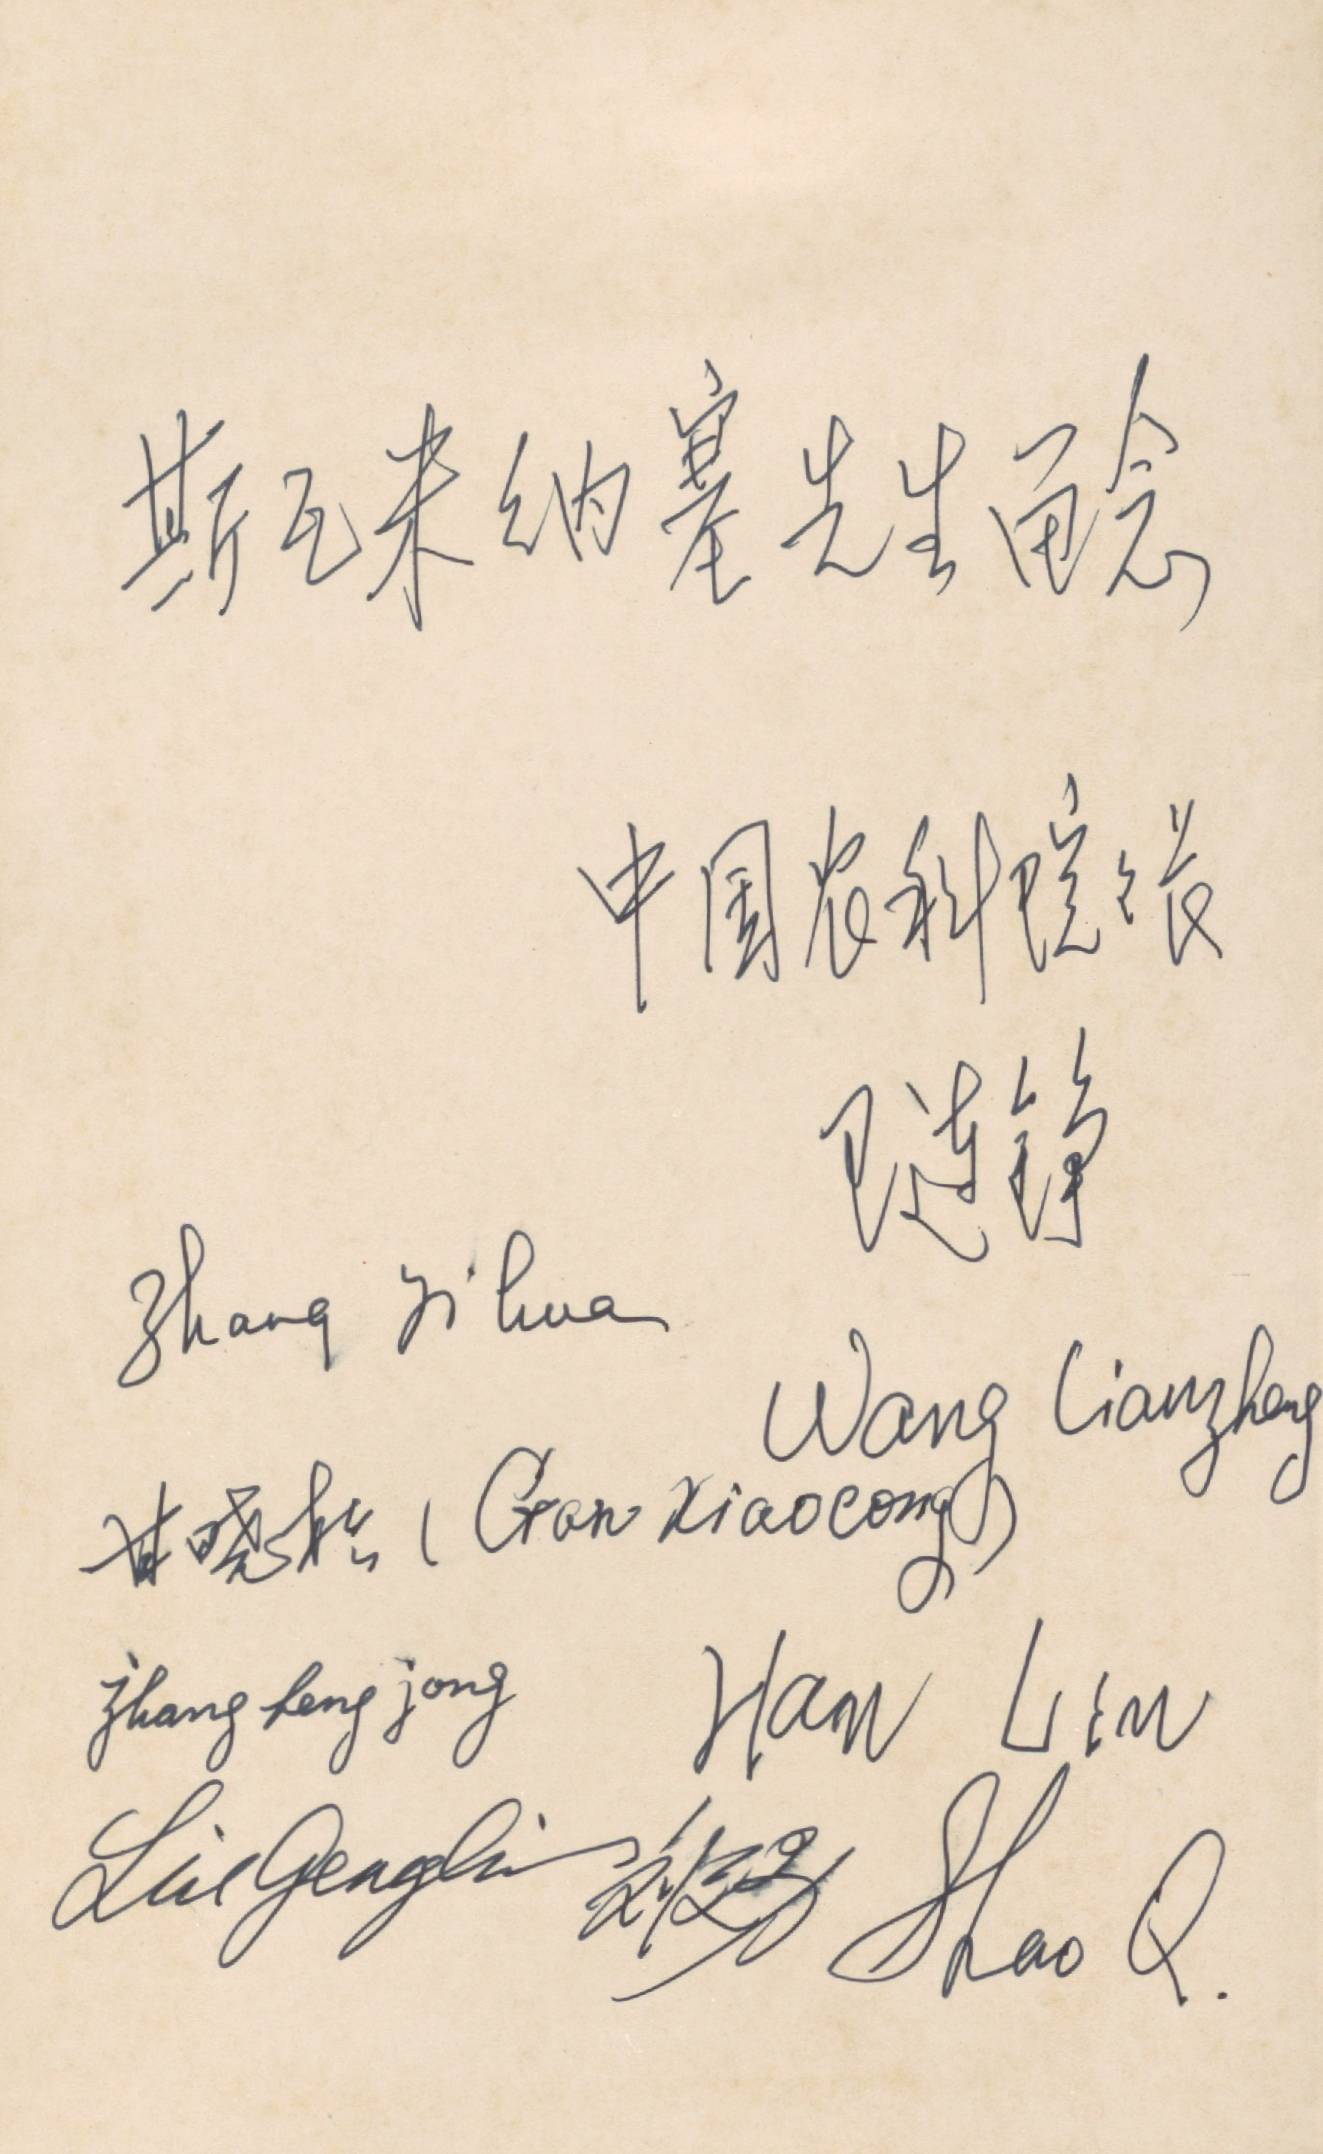 斯瓦米纳塞先生留念
中国农科院院长
王连铮
Zhang Yihua
Wang Lianzheng
甘晓松 (Gan Xiaocong)
Zhang heng jong
Han Lin
Liu Gengli
Shao Q.